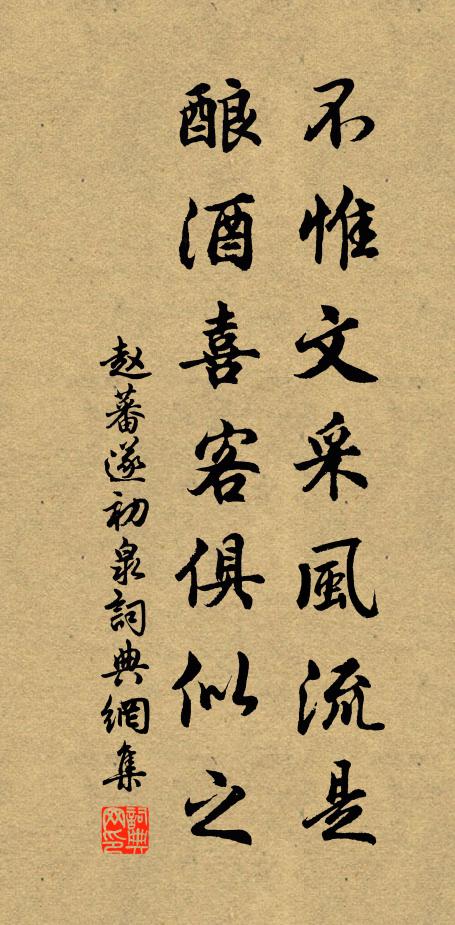 不惟文采風流是
酿酒喜客俱似之
赵蕃遂初泉詞典網集
詞典网印